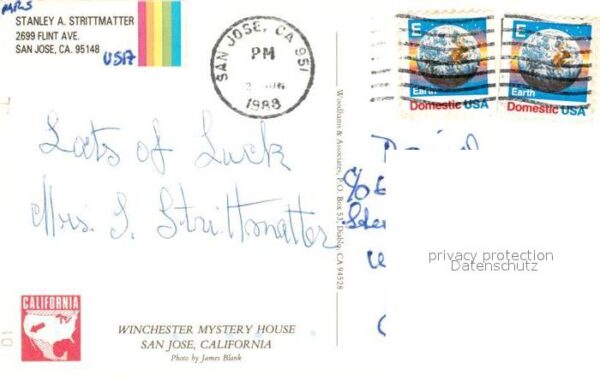 MRS
STANLEY A. STRITTMATTER
2699 FLINT AVE.
SAN JOSE, CA. 95148
USA
SAN JOSE, CA 951
PM
1988
E
Earth
Domestic USA
E
Earth
Domestic USA
Lots of Luck
Mrs. S. Strittmatter
Woodhams & Associates, P.O. Box 53, Diablo, CA 94528
c/o
privacy protection
Datenschutz
CALIFORNIA
WINCHESTER MYSTERY HOUSE
SAN JOSE, CALIFORNIA
Photo by James Blank